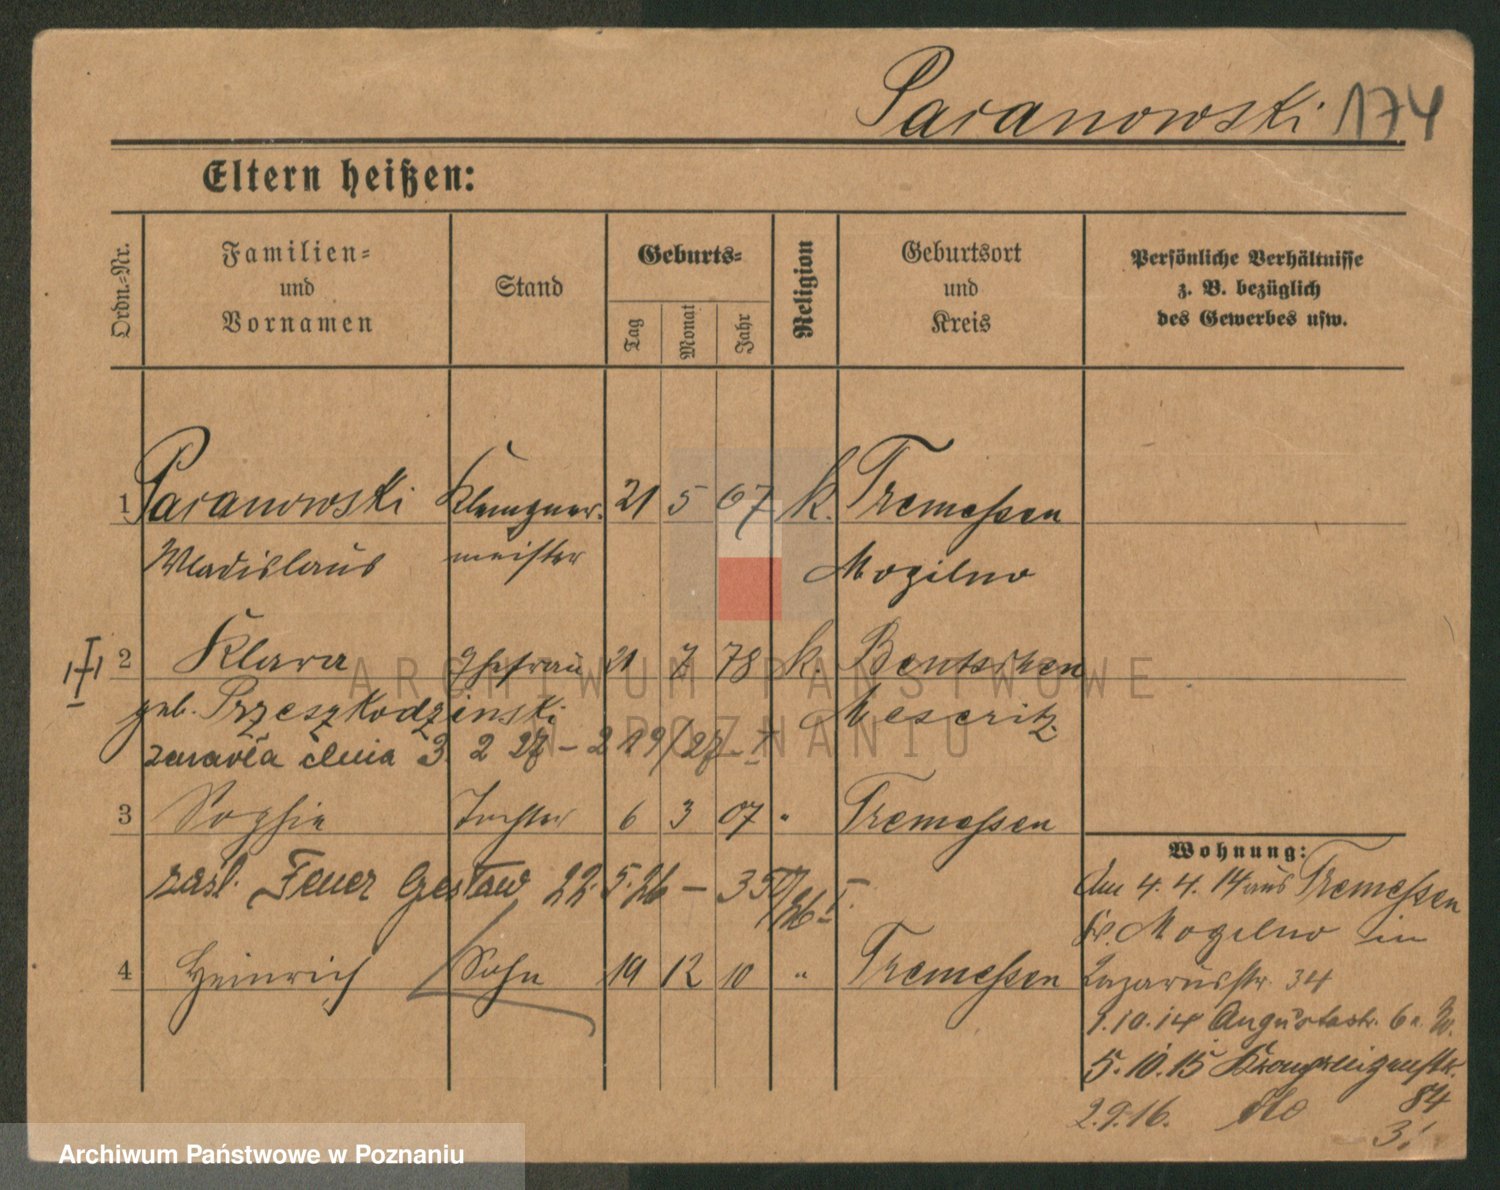 Paranowski 174
Eltern heißen:
Ordn.-Nr.
Familien-
und
Vornamen
Stand
Geburts-
Tag
Monat
Jahr
Religion
Geburtsort
und
Kreis
Persönliche Verhältnisse
z. B. bezüglich
des Gewerbes usw.
1 Paranowski Klempner- 21 5 67 k. Tremessen
Wladislaus meister Mogilno
2 Klara Ehefrau 21 7 78 k. Bentschen
geb. Przeszkodzinski Meseritz
zmarła dnia 3. 2 27 – 219/27 – I
3 Sophie Tochter 6 3 07 " Tremessen
zaśl. Feuer Gestaw 22. 5. 26 – 357/26 – I.
4 Heinrich Sohn 19 12 10 " Tremessen
Wohnung:
Am 4. 4. 14 aus Tremessen
Kr. Mogilno in
Lazarusstr. 34
1. 10. 14 Augustastr. 6a
5. 10. 15 Kronprinzenstr.
84
2. 9. 16. dto
3.
ARCHIWUM PAŃSTWOWE
W POZNANIU
Archiwum Państwowe w Poznaniu